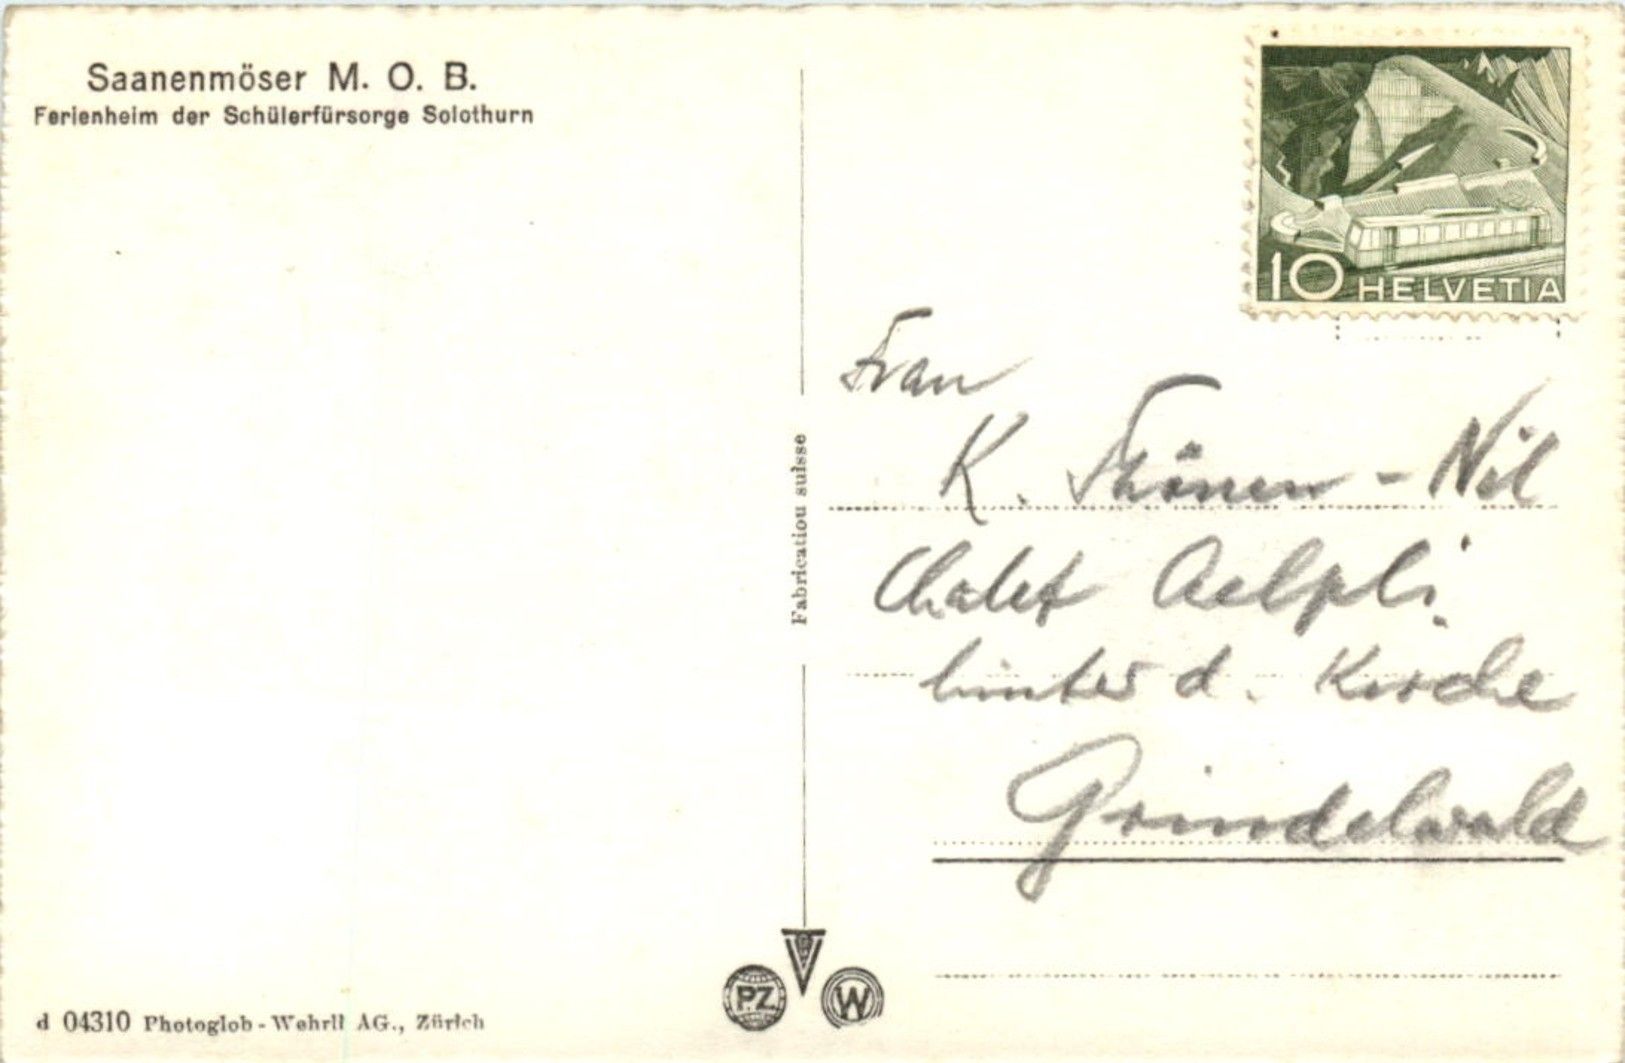 Saanenmöser M. O. B.
Ferienheim der Schülerfürsorge Solothurn
10 HELVETIA
Frau
K. -
Chalet Aelpli
hinter d. Kirche
Grindelwald
Fabrication suisse
PZ
W
d 04310 Photoglob-Wehrli AG., Zürich